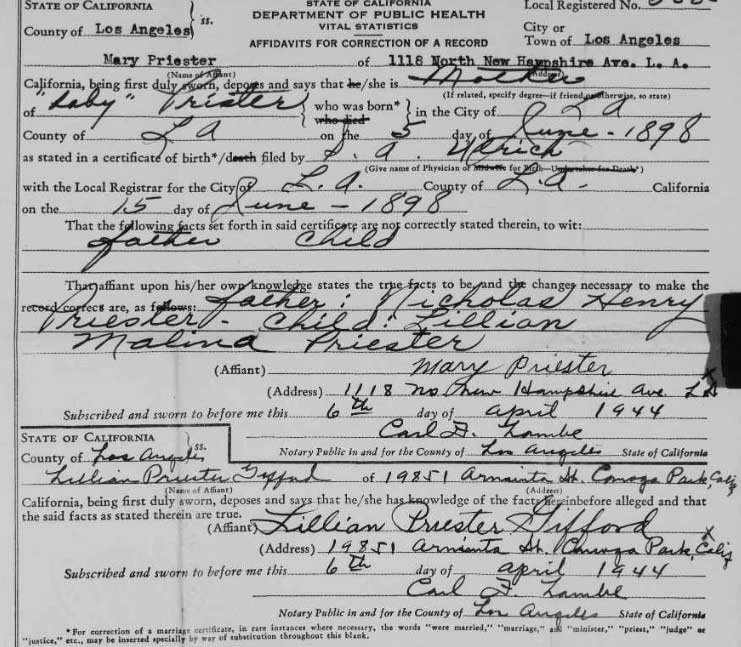 STATE OF CALIFORNIA
STATE OF CALIFORNIA
DEPARTMENT OF PUBLIC HEALTH
VITAL STATISTICS
AFFIDAVITS FOR CORRECTION OF A RECORD
Local Registered No.
County of Los Angeles } ss.
City or
Town of Los Angeles
Mary Priester of 1118 North New Hampshire Ave. L. A.
(Name of Affiant) (Address)
California, being first duly sworn, deposes and says that he/she is Mother
(If related, specify degree—if friend, or otherwise, so state)
of "baby" Priester { who was born* who died } in the City of L A
County of L A on the 5 day of June - 1898
as stated in a certificate of birth*/death filed by A. Ulrich
(Give name of Physician or Midwife for Birth—Undertaker for Death*)
with the Local Registrar for the City of L. A. County of L. A. California
on the 15 day of June - 1898
That the following facts set forth in said certificate are not correctly stated therein, to wit:
father Child
That affiant upon his/her own knowledge states the true facts to be, and the changes necessary to make the
record correct are, as follows: father: Nicholas Henry
Priester - Child: Lillian
Malina Priester
(Affiant) Mary Priester
(Address) 1118 No New Hampshire Ave. LA
Subscribed and sworn to before me this 6th day of April 1944
Carl F. Lambe
Notary Public in and for the County of Los Angeles State of California
STATE OF CALIFORNIA
County of Los Angeles } ss.
Lillian Priester Gifford of 19851 Arminta St. Canoga Park, Calif
(Name of Affiant) (Address)
California, being first duly sworn, deposes and says that he/she has knowledge of the facts hereinbefore alleged and that
the said facts as stated therein are true.
(Affiant) Lillian Priester Gifford x
(Address) 19851 Arminta St. Canoga Park, Calif
Subscribed and sworn to before me this 6th day of April 1944
Carl F. Lambe
Notary Public in and for the County of Los Angeles State of California
*For correction of a marriage certificate, in rare instances where necessary, the words "were married," "marriage," and "minister," "priest," "judge" or
"justice," etc., may be inserted specially by way of substitution throughout this blank.